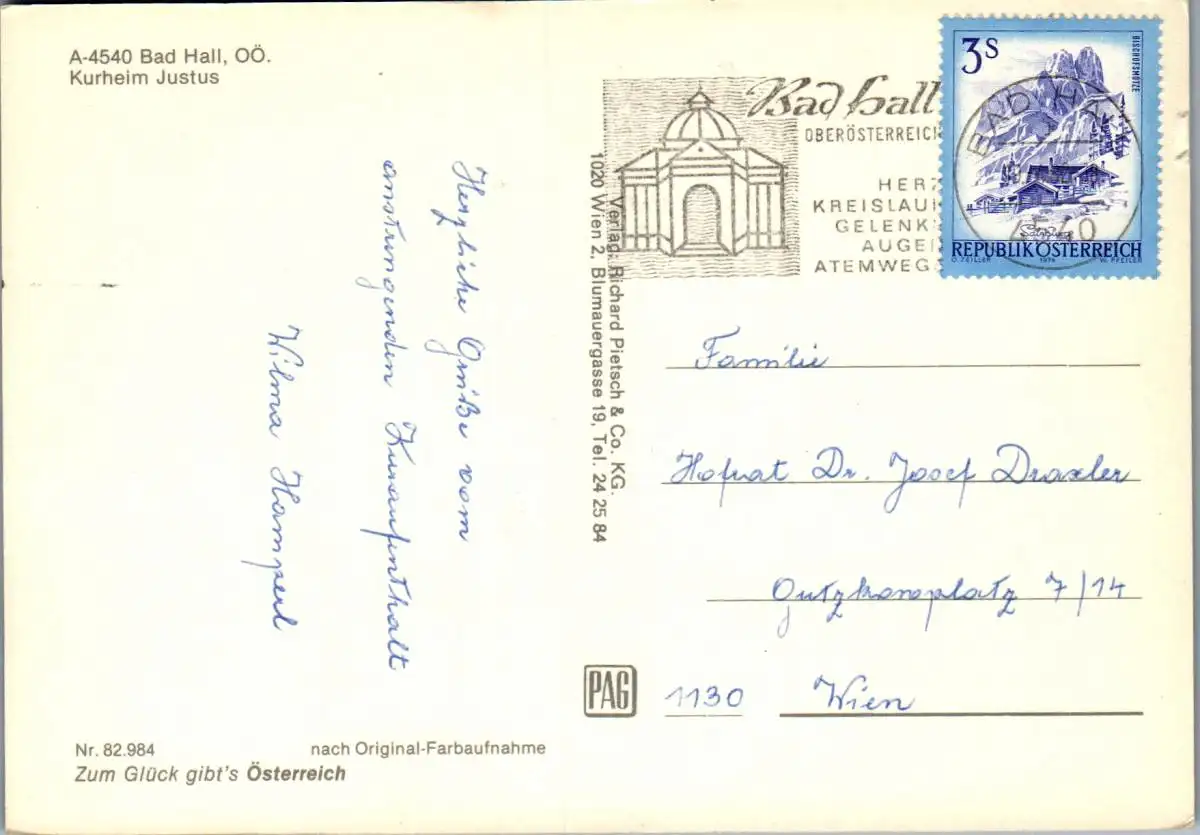 A-4540 Bad Hall, OÖ.
Kurheim Justus
Herzliche Grüße vom
anstrengenden Kuraufenthalt
Wilma Hamperl
Nr. 82.984
nach Original-Farbaufnahme
Zum Glück gibt's Österreich
Verlag: Richard Pietsch & Co. KG.
1020 Wien 2, Blumauergasse 19, Tel. 24 25 84
PAG
Bad Hall
OBERÖSTERREICH
HERZ
KREISLAUF
GELENK
AUGEN
ATEMWEGE
3S
BISCHOFSMÜTZE
BAD HALL
4540
REPUBLIK ÖSTERREICH
O. ZEILLER 1974 W. PFEILER
Familie
Hofrat Dr. Josef Draxler
Gutzkowplatz 7/14
1130 Wien